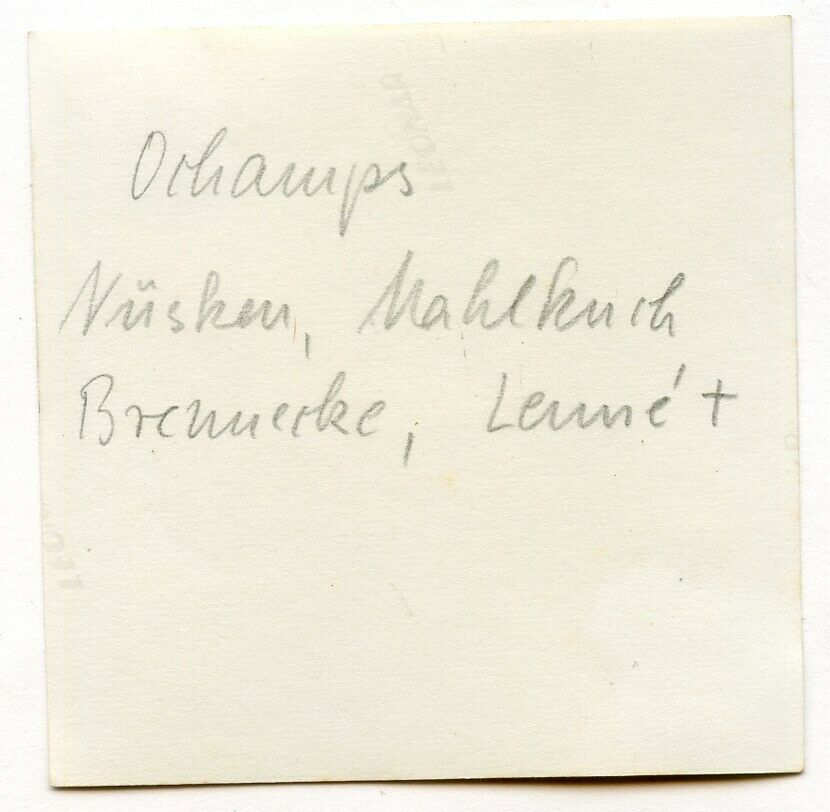 Ochamps
Nüsken, Mahlkuch
Brennecke, Lenné +